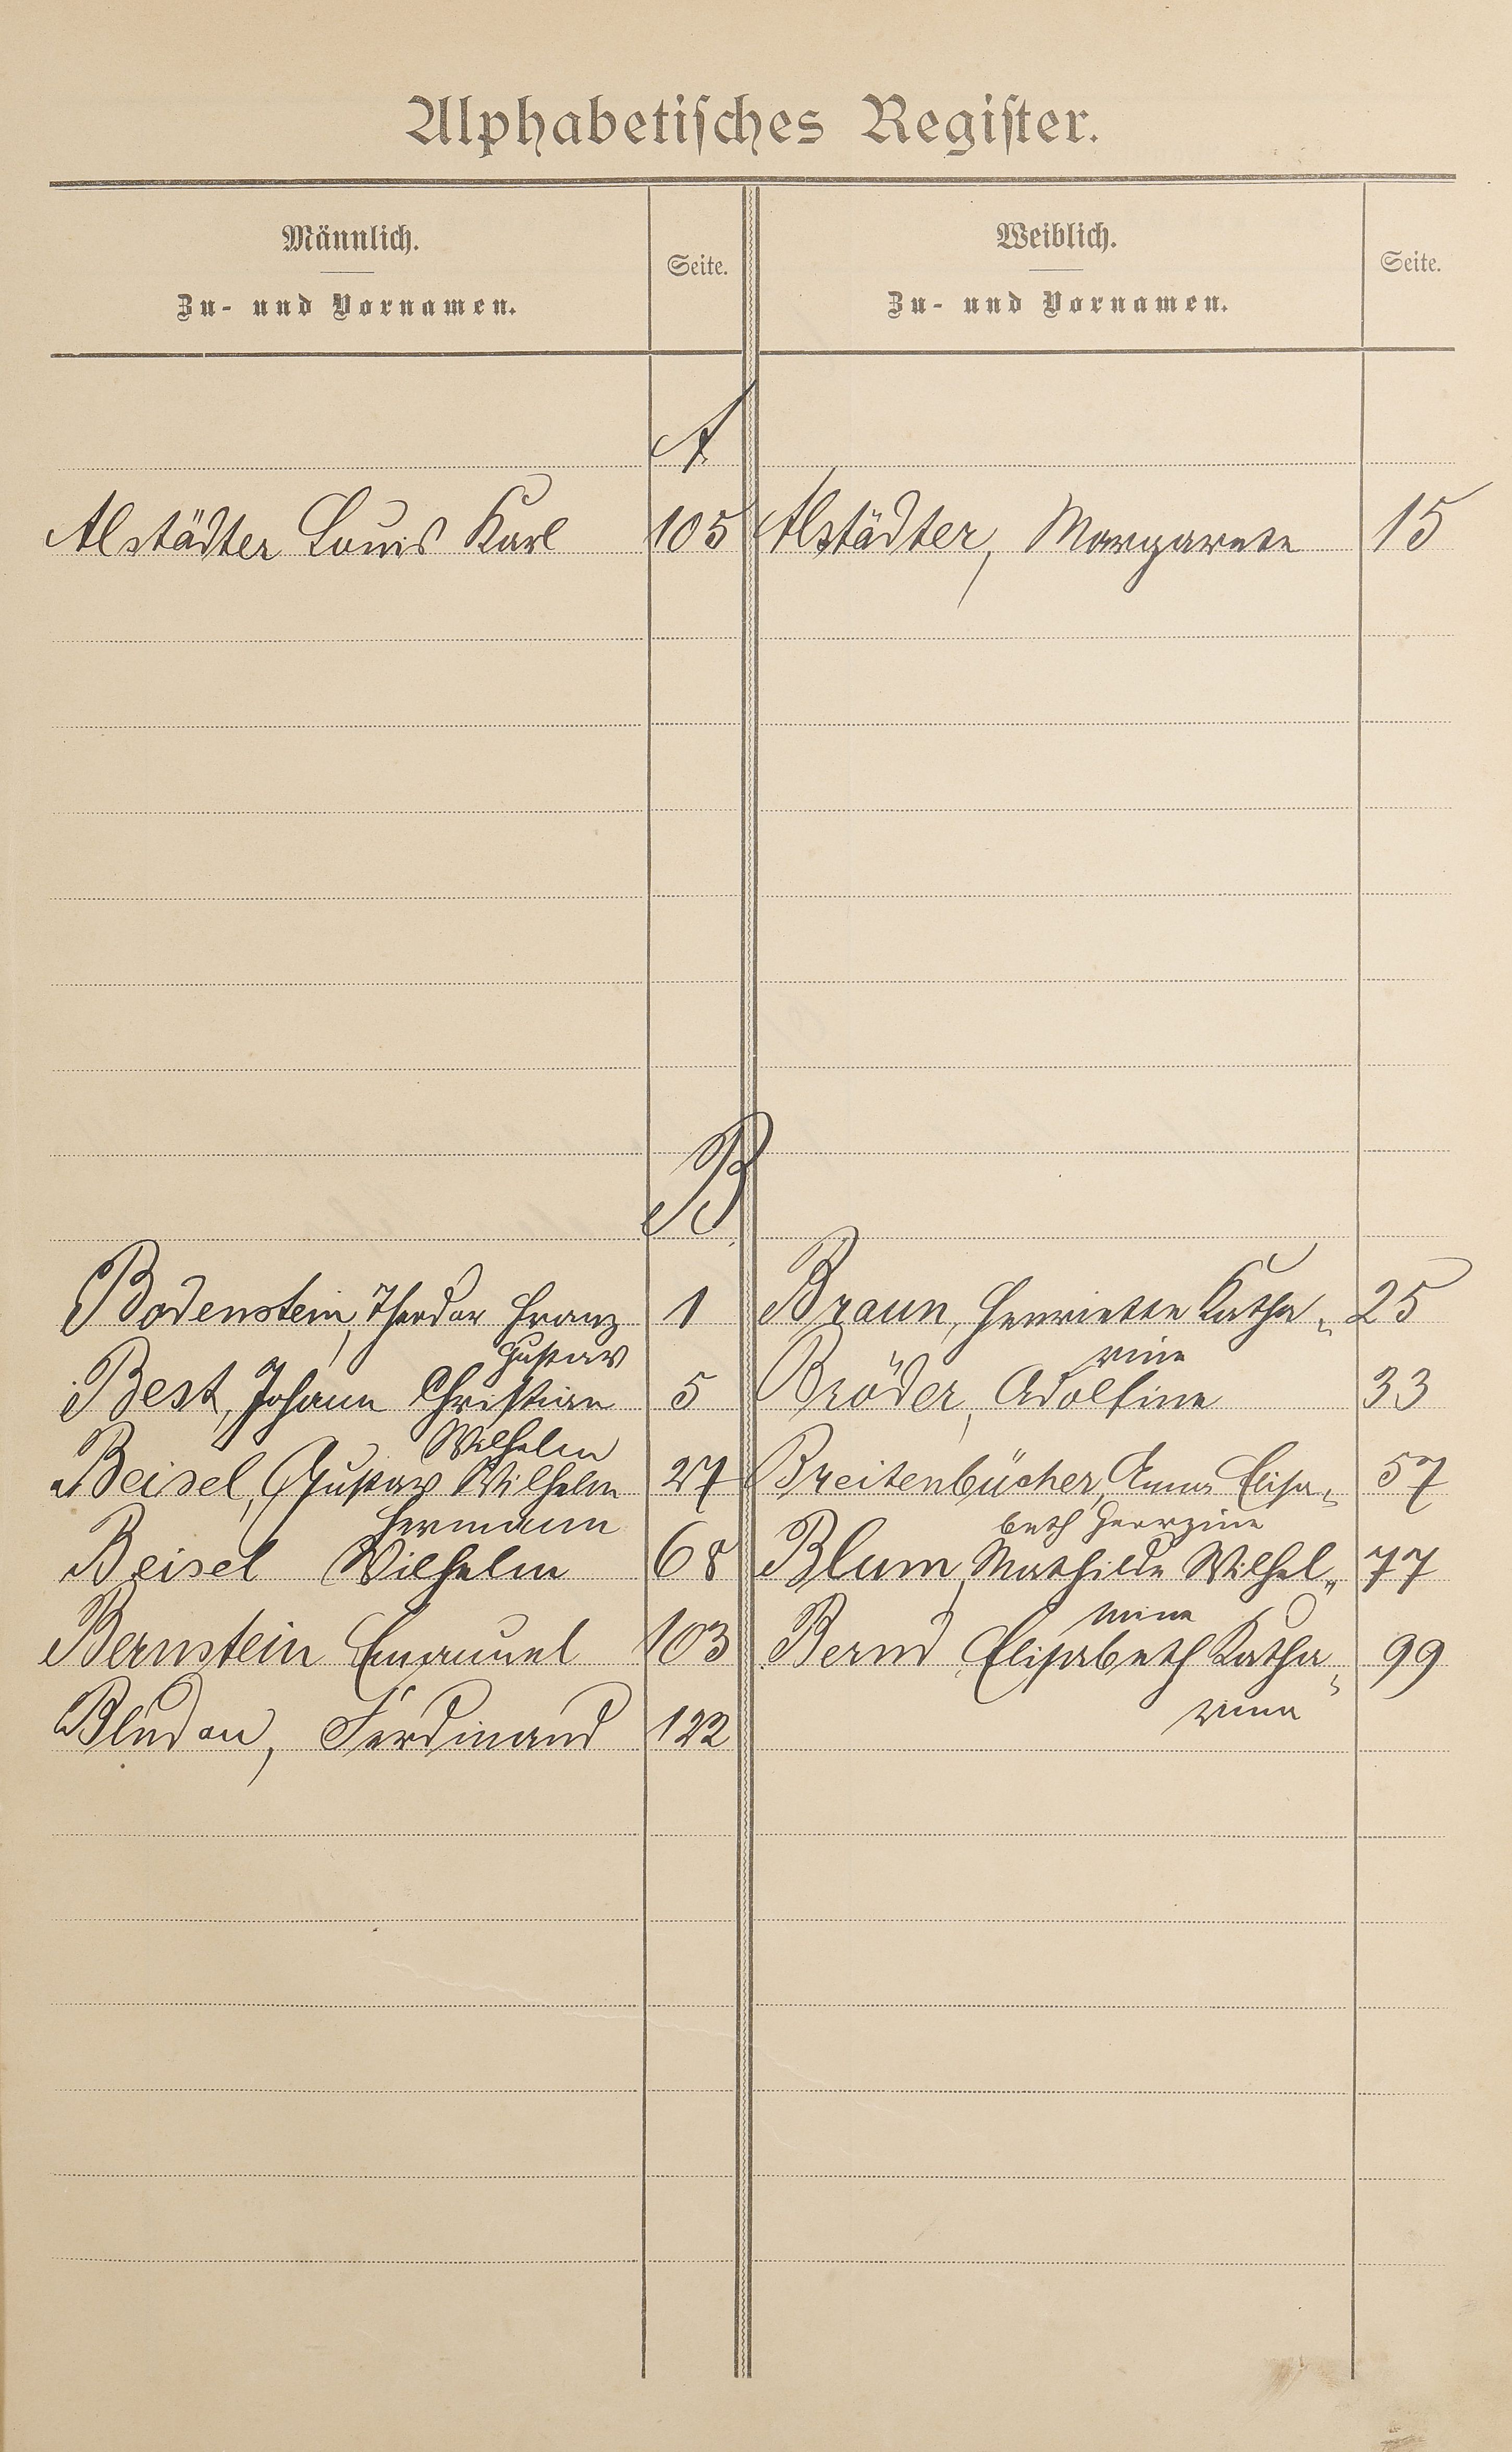 Alphabetisches Register.
Männlich.
Zu- und Vornamen.
Seite.
Weiblich.
Zu- und Vornamen.
Seite.
A
Alstädter Louis Karl 105 Alstädter, Margarete 15
B
Bodenstein, Theodor Franz 1 Braun, Henriette Katha- 25
Gustav rine
Best, Johann Christian 5 Bröder, Adolfine 33
Wilhelm
Beisel, Gustav Wilhelm 27 Breitenbücher, Anna Elisa- 57
Hermann beth Herrzine
Beisel Wilhelm 68 Blum, Mathilde Wilhel- 77
mine
Bernstein Emanuel 103 Bernd Elisabeth Katha- 99
rina
Bludau, Ferdinand 122